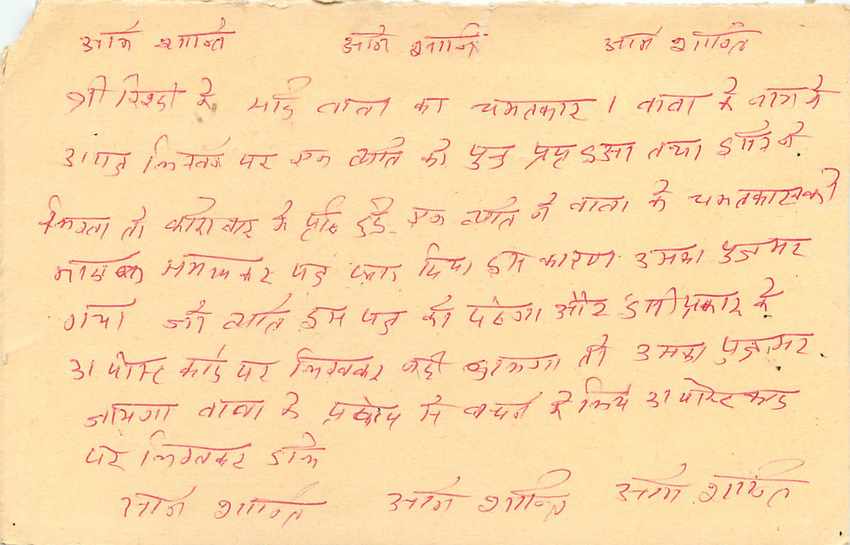 ओम शान्ति ओम शान्ति ओम शान्ति
श्री शिरडी के साई बाबा का चमत्कार । बाबा के नाम के
पत्र लिखने पर एक व्यक्ति को पुत्र प्राप्त हुआ तथा दूसरे ने
लिखा तो कारोबार में वृद्धि हुई. एक व्यक्ति ने बाबा के चमत्कार को
समझकर पत्र फाड़ दिया इस कारण उसका पुत्र मर
गया जो व्यक्ति इस पत्र को पढेगा और इसी प्रकार के
पोस्ट कार्ड पर लिखकर नही तो उसका पुत्र मर
जायेगा बाबा के प्रकोप से बचने के लिये पोस्ट कार्ड
पर लिखकर डाले
ओम शान्ति ओम शान्ति ओम शान्ति